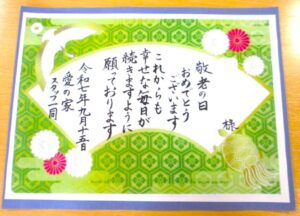 様
敬老の日
おめでとう
ございます
これからも
幸せな毎日が
続きますように
願っております
令和七年九月十五日
愛の家
スタッフ一同